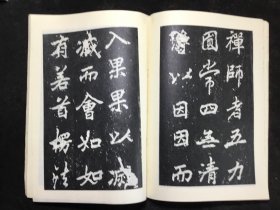 禪師者五力
圓常四無清
以因因而
入果果以滅
滅而會如如
有若首楞法